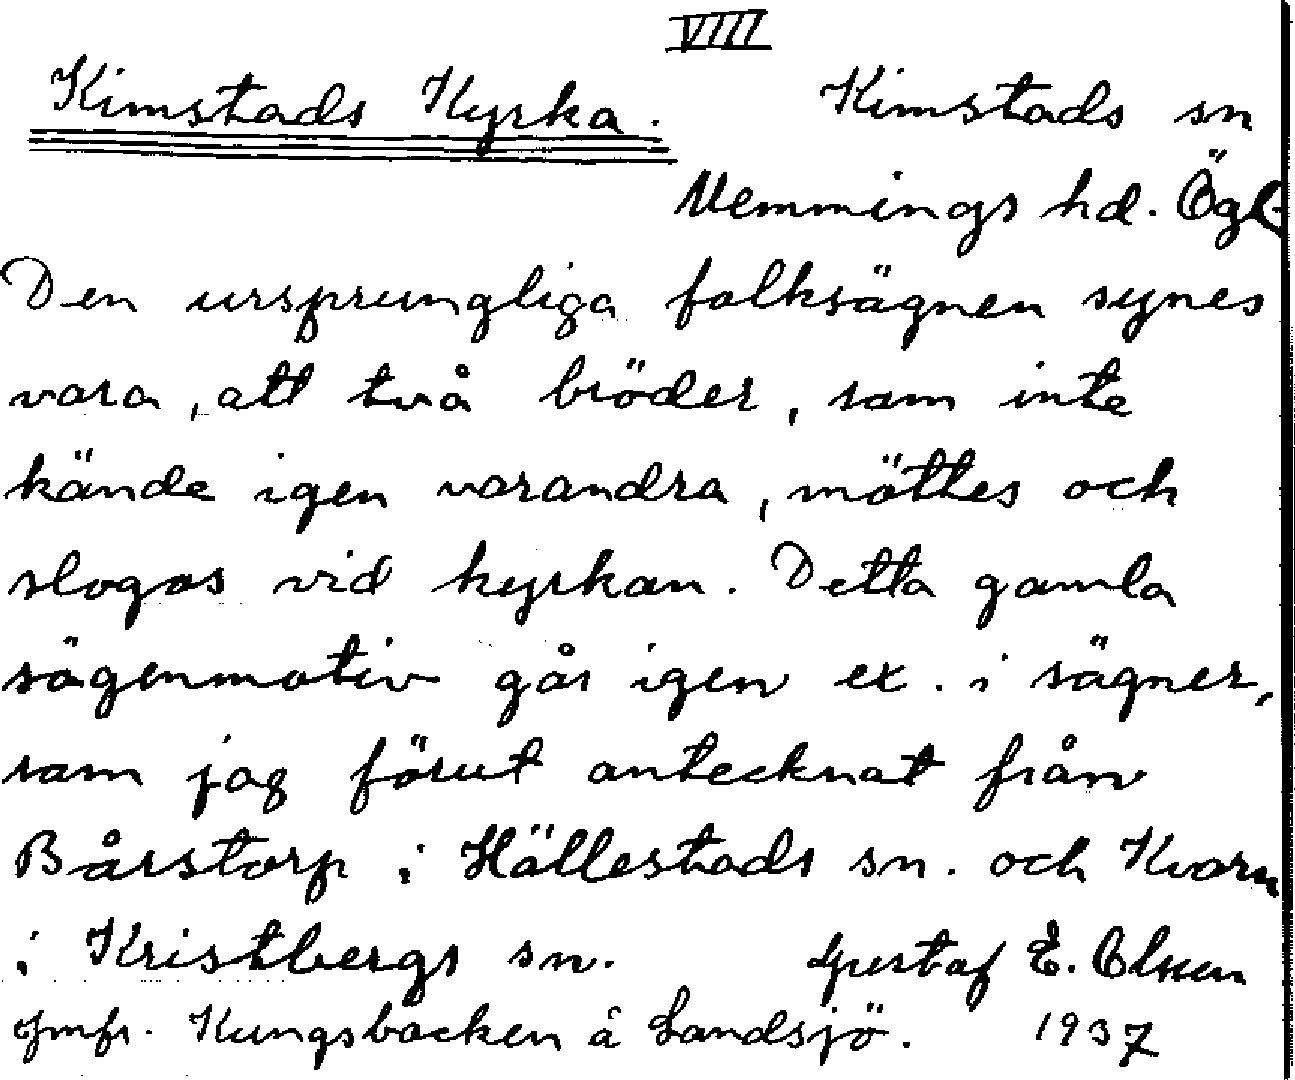 VIII
Kimstads Kyrka. Kimstads sn
Memmings hd. Ögl.
Den ursprungliga folksägnen synes
vara, att två bröder, som inte
kände igen varandra, möttes och
slogos vid kyrkan. Detta gamla
sägenmotiv går igen ex. i sägner,
som jag förut antecknat från
Bårstorp i Hällestads sn. och Kvarn
i Kristbergs sn. Gustaf E. Olsson
Jmfr. Kungsbacken å Landsjö. 1937